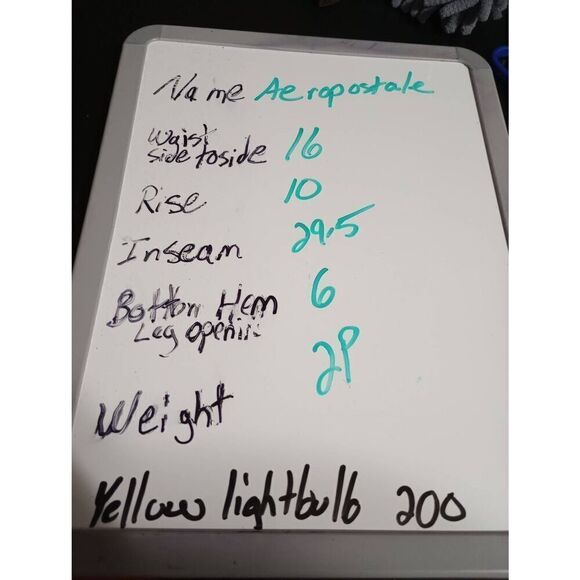 Name Aeropostale
Waist
side to side 16
Rise 10
Inseam 29.5
Bottom Hem 6
Leg openin
2P
Weight
Yellow lightbulb 200